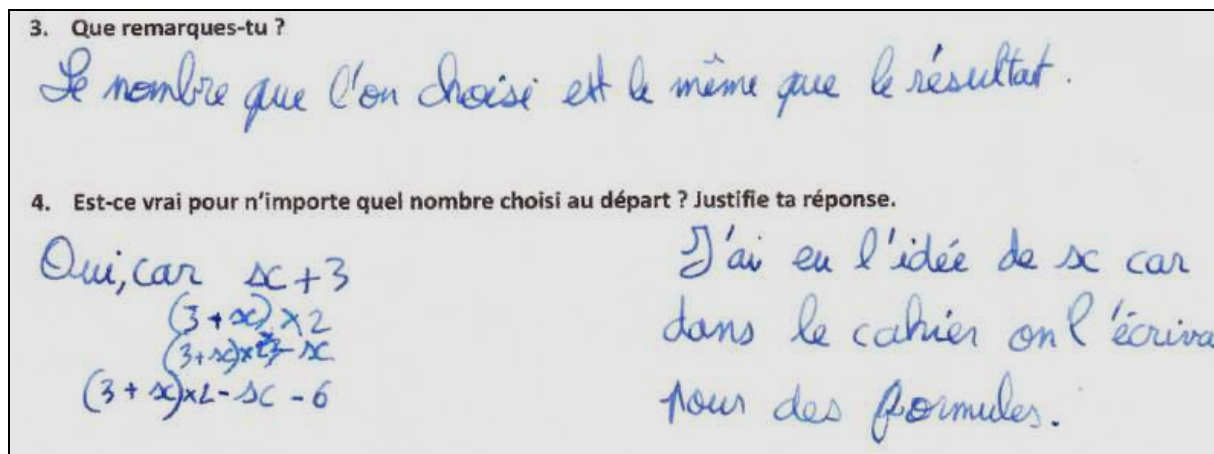 3. Que remarques-tu ?
Le nombre que l'on choisi est le même que le résultat.
4. Est-ce vrai pour n'importe quel nombre choisi au départ ? Justifie ta réponse.
Oui, car x + 3
(3 + x) × 2
(3 + x) × 2 - x
(3 + x) × 2 - x - 6
J'ai eu l'idée de x car
dans le cahier on l'écriva
pour des formules.